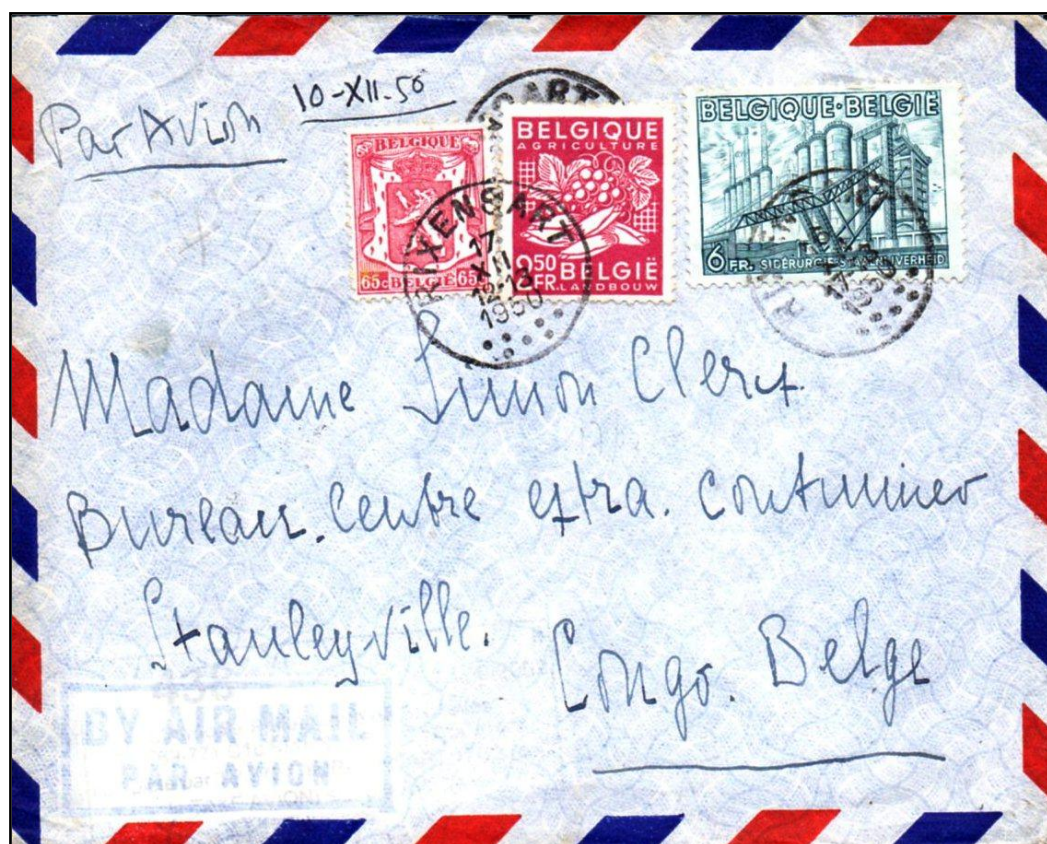 Par Avion
10-XII.50
BELGIQUE
65c BELGIË 65c
BELGIQUE
AGRICULTURE
2.50 FR. BELGIË
LANDBOUW
BELGIQUE·BELGIË
6 FR. SIDÉRURGIE STAALNIJVERHEID
RIXENSART
17
XII
12-13
1950
Madame Simon Clerx
Bureau. Centre extra. coutumier
Stanleyville.
Congo. Belge
BY AIR MAIL
PAR AVION